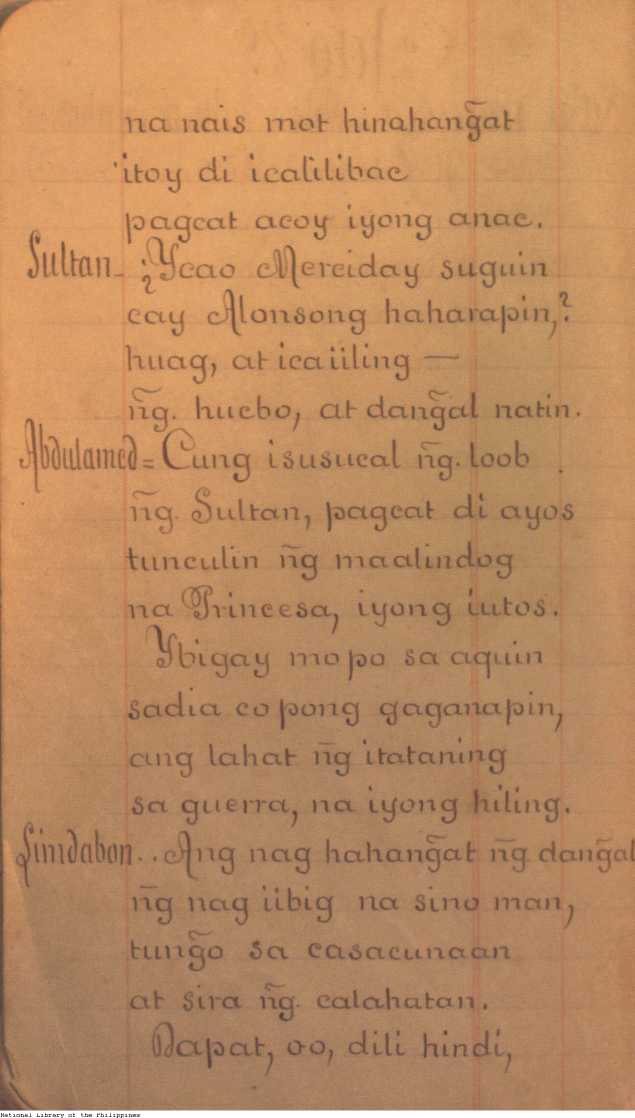 na nais mot hinahang̃at
itoy di icalilibac
pagcat acoy iyong anac.
Sultan_ ¿Ycao Merciday suguin
cay Alonsong haharapin,?
huag, at icaiiling —
n͠g. hucbo, at dang̃al natin.
Abdulamed = Cung isusucal n͠g. loob
n͠g. Sultan, pagcat di ayos
tunculin n͠g maalindog
na Princesa, iyong iutos.
Ybigay mo po sa aquin
sadia co pong gaganapin,
ang lahat n͠g itataning
sa guerra, na iyong hiling.
Limdabon.. Ang nag hahang̃at n͠g. dang̃al
n͠g nag iibig na sino man,
tung̃o sa casacunaan
at sira n͠g. calahatan.
Dapat, oo, dili hindi,
National Library of the Philippines